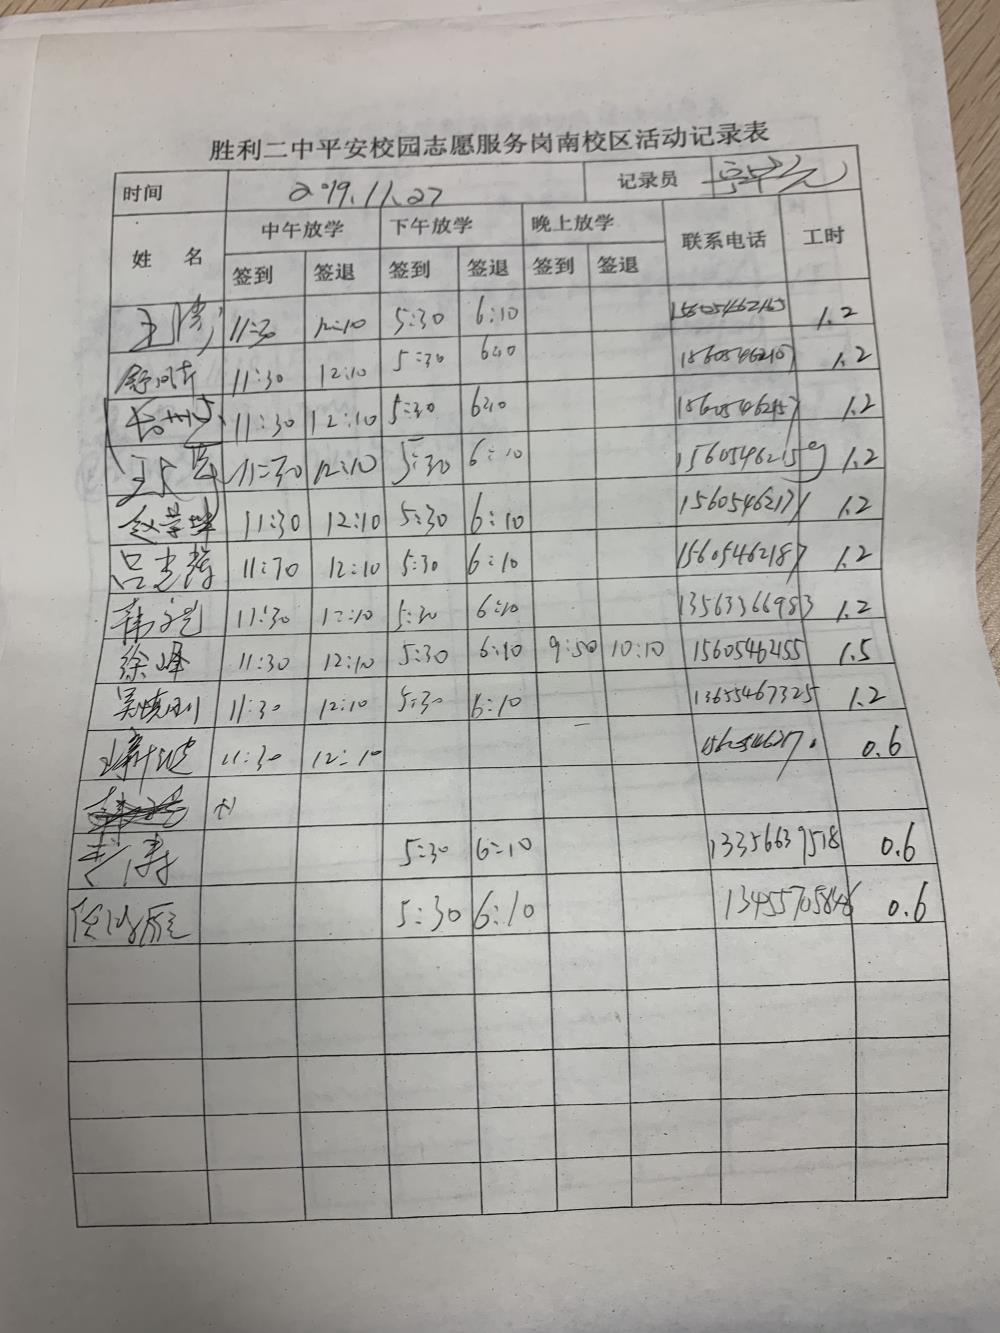 胜利二中平安校园志愿服务岗南校区活动记录表
时间 2019.11.27 记录员
姓 名 中午放学 下午放学 晚上放学 联系电话 工时
签到 签退 签到 签退 签到 签退
11:30 12:10 5:30 6:10 1.2
11:30 12:10 5:30 6:10 1.2
11:30 12:10 5:30 6:10 1.2
11:30 12:10 5:30 6:10 15605462159 1.2
赵荣坤 11:30 12:10 5:30 6:10 15605462171 1.2
吕志强 11:30 12:10 5:30 6:10 15605462187 1.2
韩 11:30 12:10 5:30 6:10 13563366983 1.2
徐峰 11:30 12:10 5:30 6:10 9:50 10:10 15605462455 1.5
吴慎刚 11:30 12:10 5:30 6:10 13655467325 1.2
11:30 12:10 0.6
李涛 5:30 6:10 13356639518 0.6
5:30 6:10 13455705846 0.6